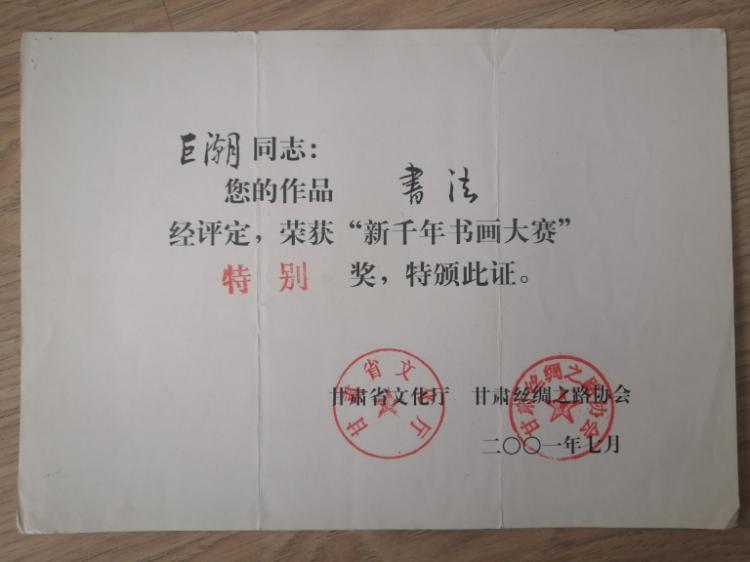 巨潮同志：
您的作品 書法
经评定，荣获“新千年书画大赛”
特别 奖，特颁此证。
甘肃省文化厅 甘肃丝绸之路协会
甘肃省文化厅 甘肃丝绸之路协会
二〇〇一年七月